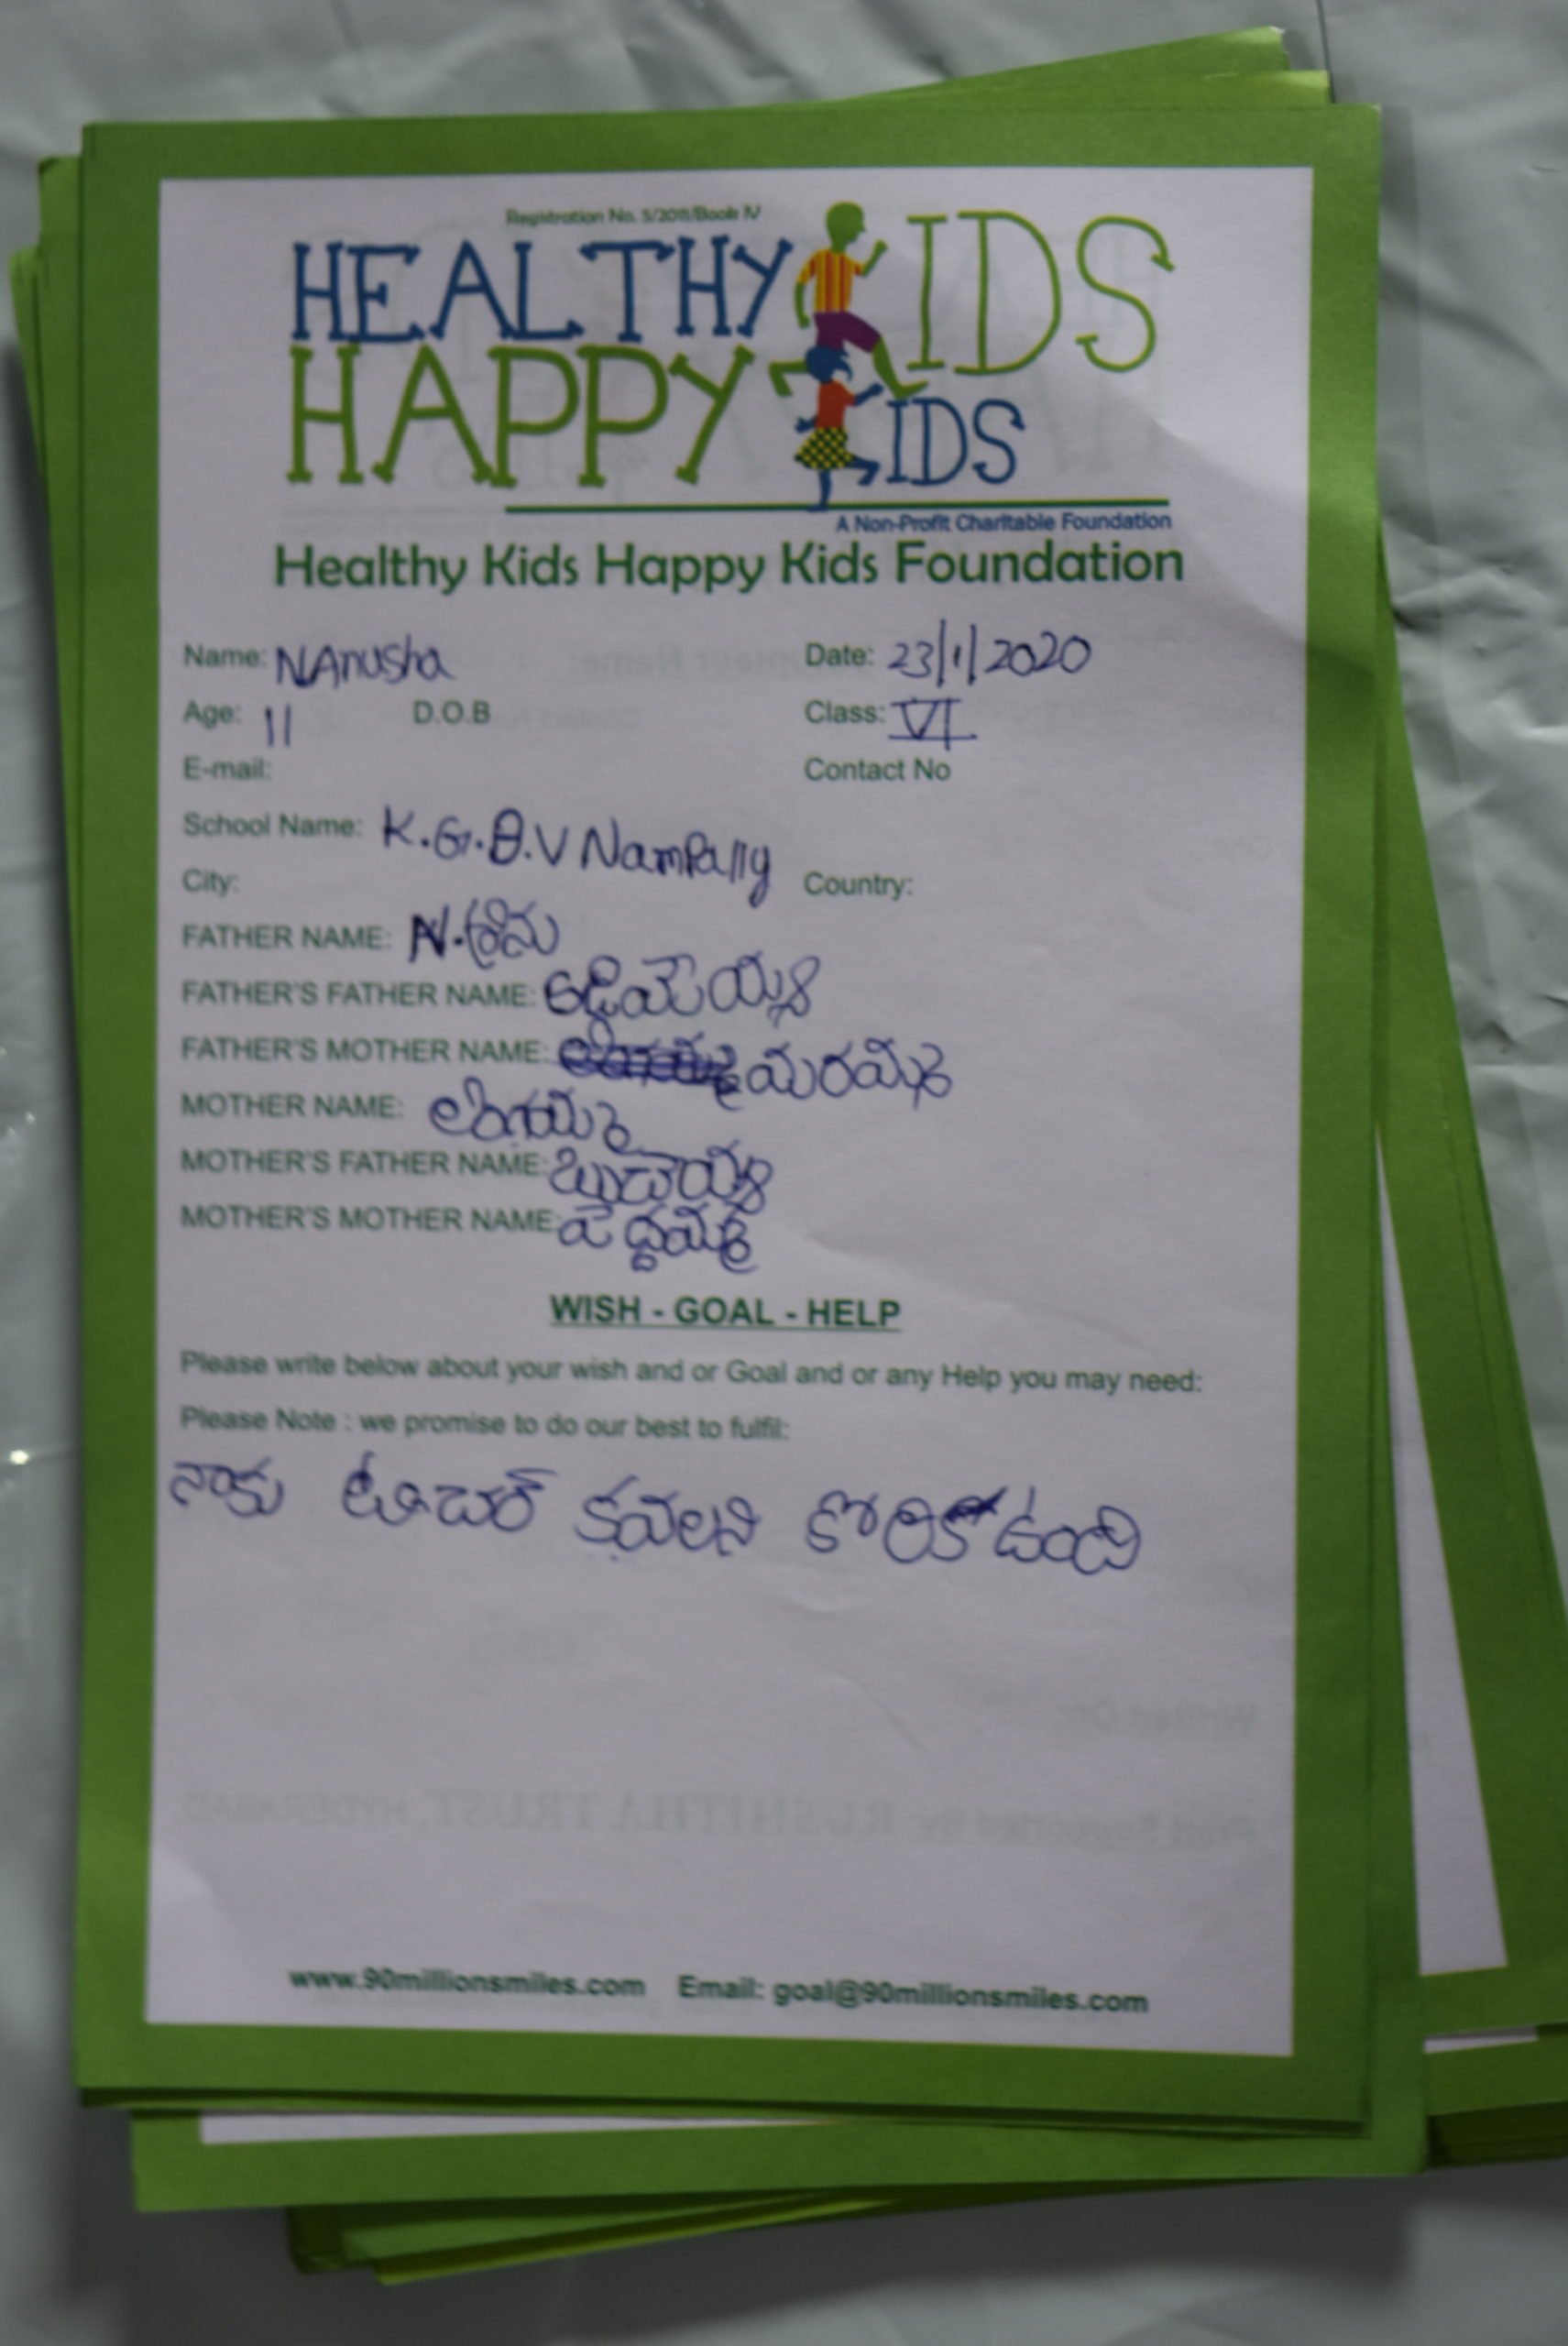 Registration No. 5/2011/Book IV
HEALTHY KIDS
HAPPY KIDS
A Non-Profit Charitable Foundation
Healthy Kids Happy Kids Foundation
Name: NAnusha Date: 23/1/2020
Age: 11 D.O.B Class: VI
E-mail: Contact No
School Name: K.G.B.V Nampally
City: Country:
FATHER NAME: N. శ్రీను
FATHER'S FATHER NAME:
FATHER'S MOTHER NAME: మరమ్మ
MOTHER NAME: లింగమ్మ
MOTHER'S FATHER NAME: బుచయ్య
MOTHER'S MOTHER NAME: పెద్దమ్మ
WISH - GOAL - HELP
Please write below about your wish and or Goal and or any Help you may need:
Please Note : we promise to do our best to fulfil:
నాకు టీచర్ కవలని కోరిక ఉంది
www.90millionsmiles.com Email: goal@90millionsmiles.com